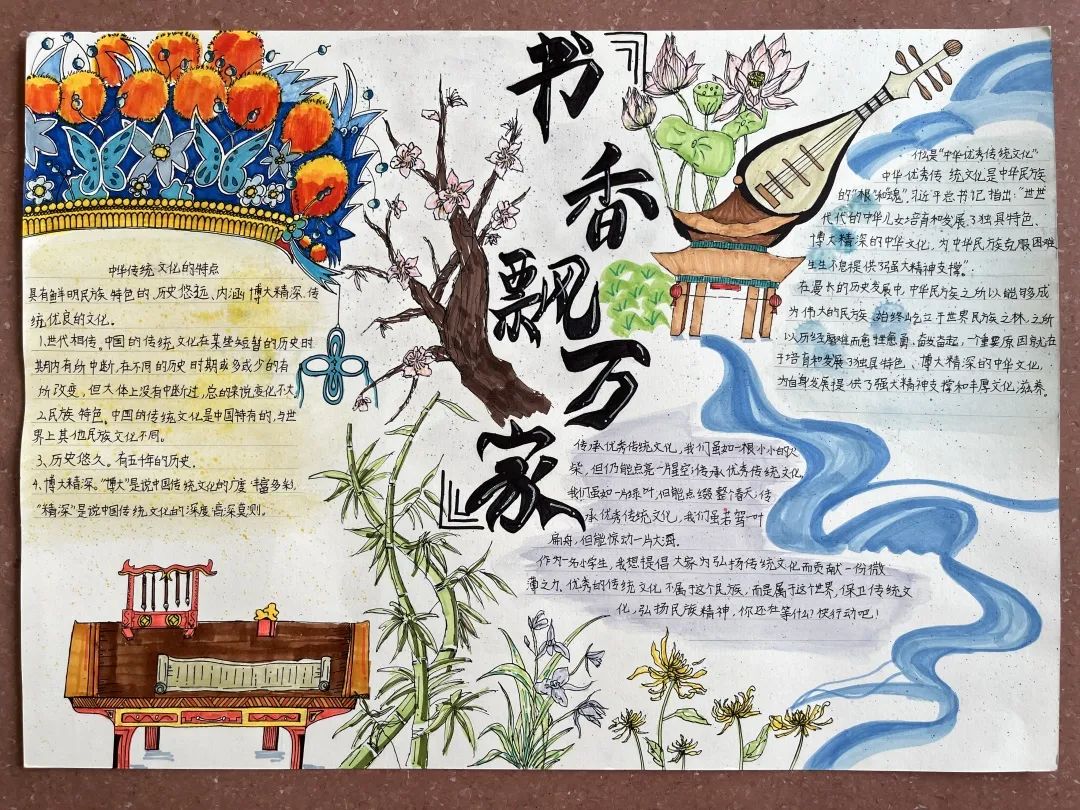 书香飘万家
中华传统文化的特点
具有鲜明民族特色的、历史悠远、内涵博大精深、传
统优良的文化。
1.世代相传。中国的传统文化在某些短暂的历史时
期内有所中断,在不同的历史时期或多或少的有
所改变,但大体上没有中断过,总的来说变化不大
2.民族特色。中国的传统文化是中国特有的,与世
界上其他民族文化不同。
3、历史悠久。有五千年的历史.
4、博大精深。“博大”是说中国传统文化的广度丰富多彩,
“精深”是说中国传统文化的深度高深莫测。
什么是“中华优秀传统文化”
中华优秀传统文化是中华民族
的“根”和“魂”,习近平总书记指出:“世世
代代的中华儿女培育和发展了独具特色、
博大精深的中华文化,为中华民族克服困难
生生不息提供了强大精神支撑”.
在漫长的历史发展中,中华民族之所以能够成
为伟大的民族始终屹立于世界民族之林,之所
以历经磨难而愈挫愈勇、奋发奋起,一个重要原因就在
于培育和发展了独具特色、博大精深的中华文化,
为自身发展提供了强大精神支撑和丰厚文化滋养.
传承优秀传统文化,我们虽如一根小小的火
柴,但仍能点亮一片星空;传承优秀传统文化,
我们虽如一片绿叶,但能点缀整个春天;传
承优秀传统文化,我们虽若驾一叶
扁舟,但能惊动一片大海。
作为一名小学生,我想提倡大家为弘扬传统文化而贡献一份微
薄之力.优秀的传统文化不属于这个民族,而是属于这世界,保卫传统文
化,弘扬民族精神,你还在等什么?快行动吧!